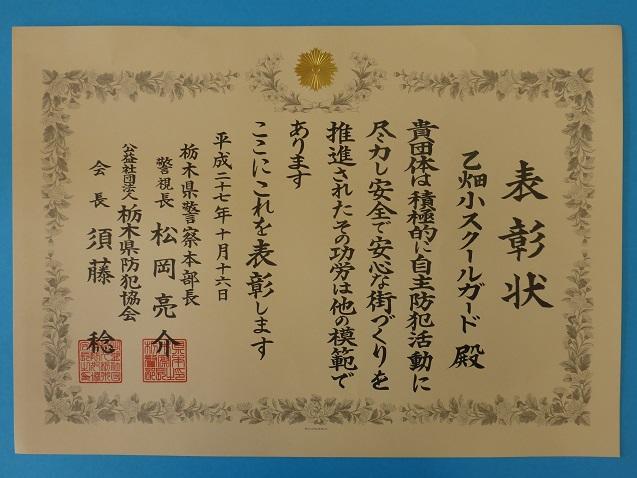 表彰状
乙畑小スクールガード 殿
貴団体は積極的に自主防犯活動に
尽力し安全で安心な街づくりを
推進されたその功労は他の模範で
あります
ここにこれを表彰します
平成二十七年十月十六日
栃木県警察本部長
警視長 松岡亮介
公益社団法人 栃木県防犯協会
会長 須藤稔